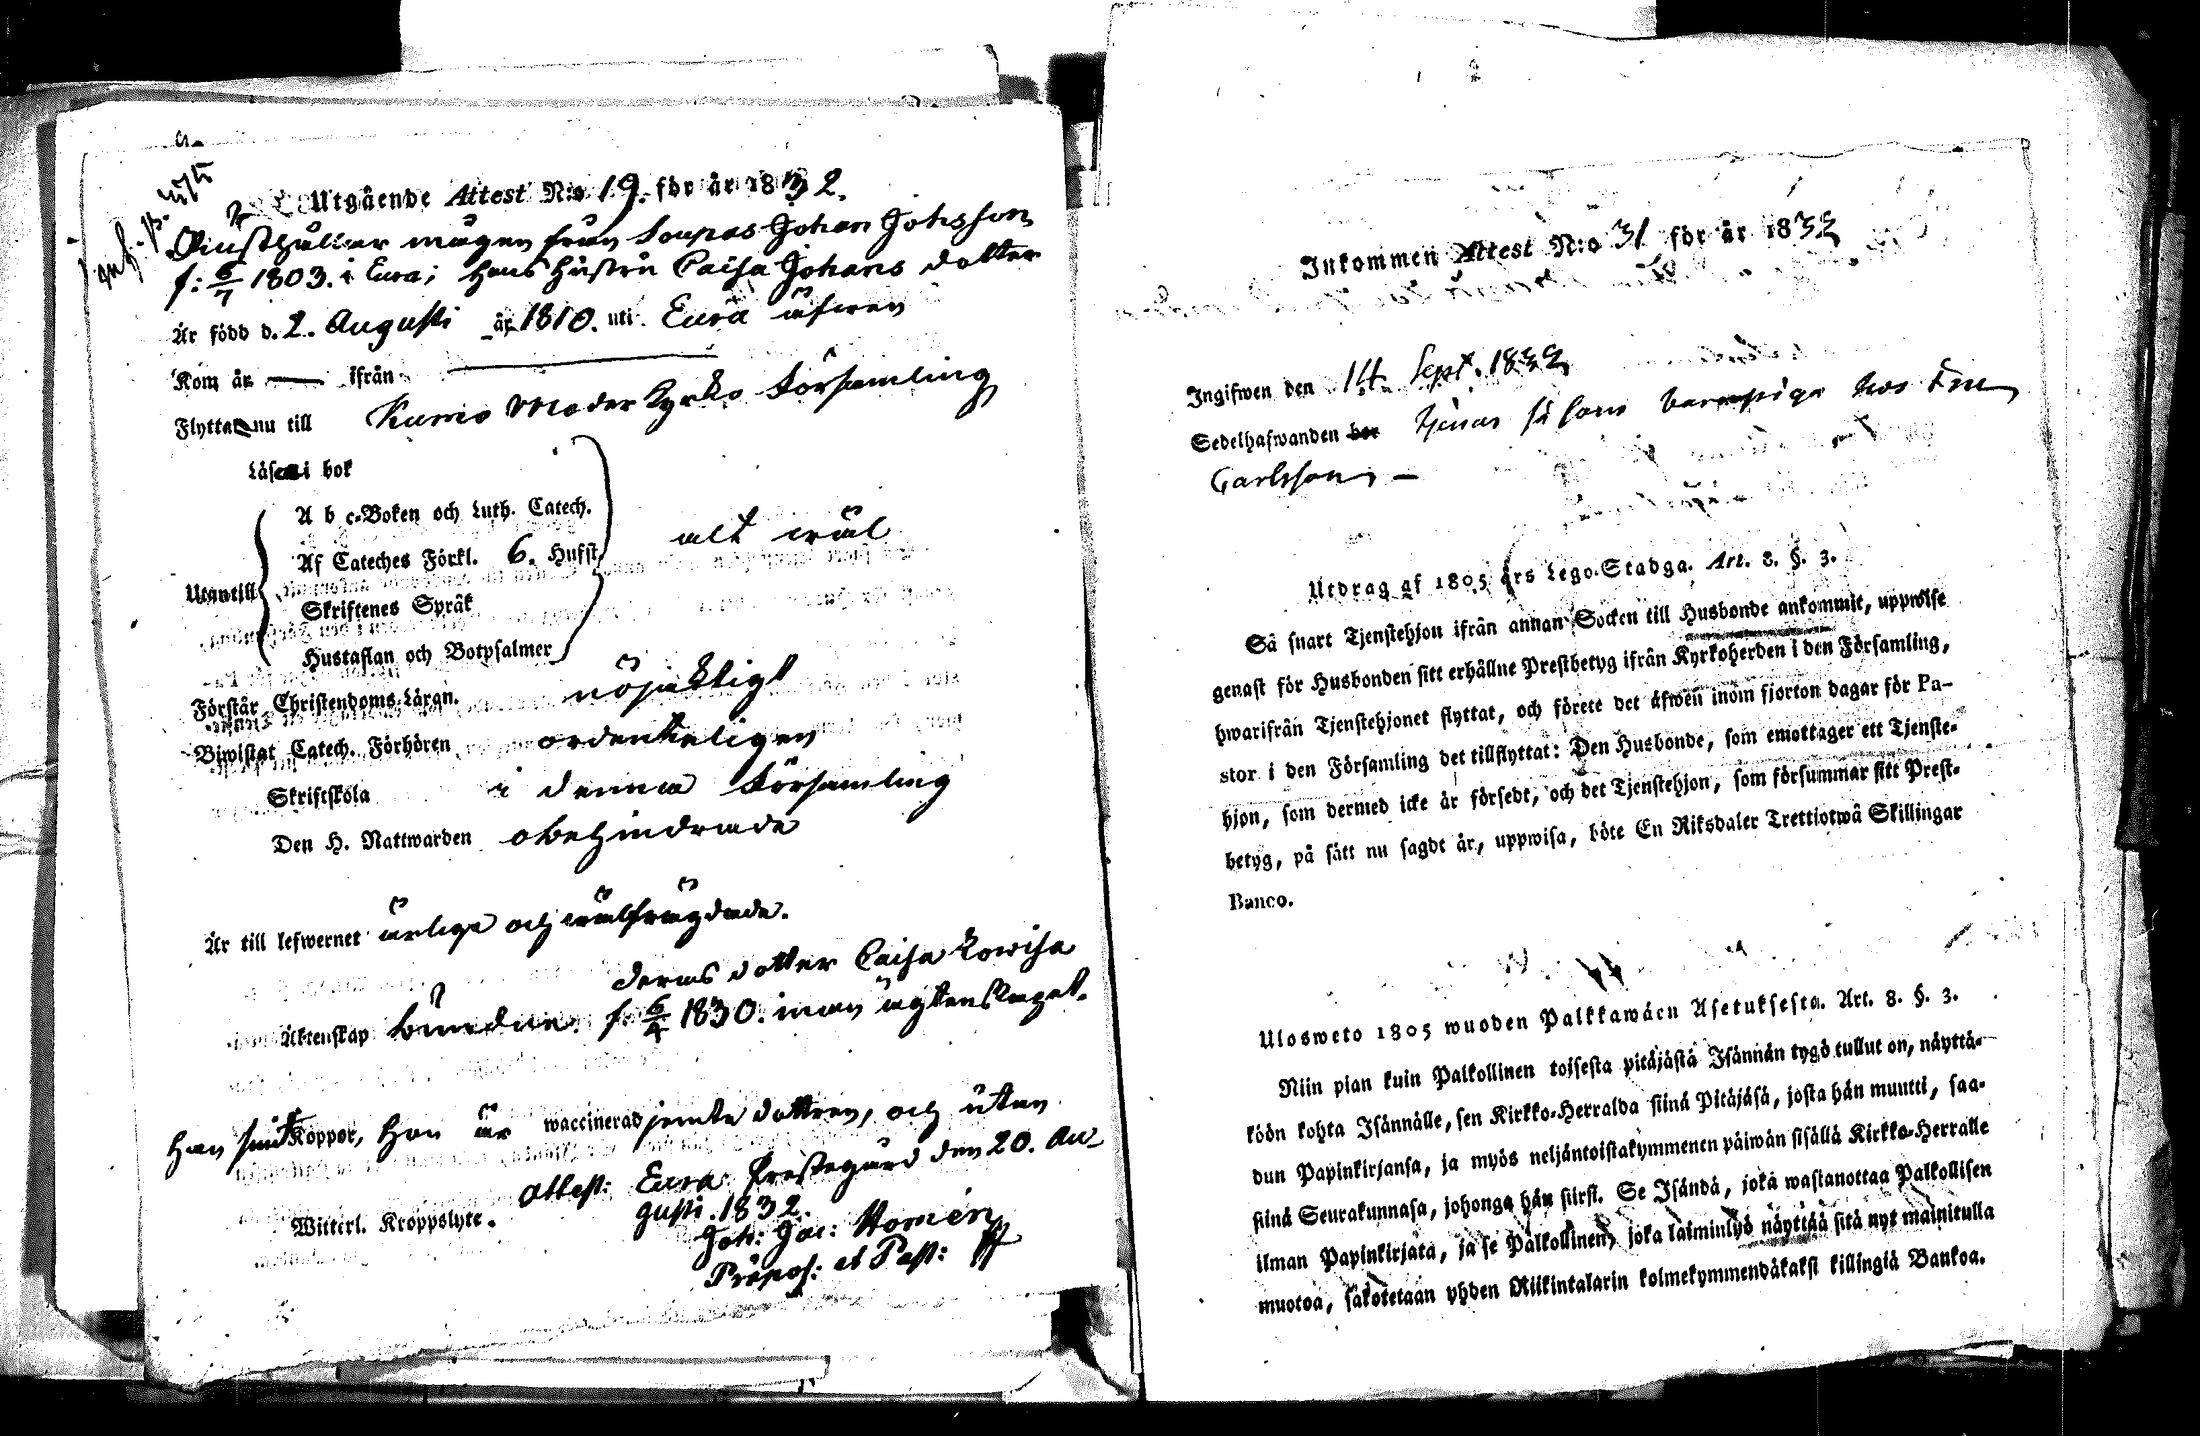 Utgående Attest N:o 19. för år 1832.
Qvinsthållar mågen från Soupas Johan Johsson
f: 6/7 1803. i Eura; hans hustru Caisa Johans dotter
Är född d. 2. Augusti år 1810. uti Eura äfwen
Kom år — ifrån
Flyttar nu till Kumo Moder Kyrko Församling
Läser i bok
A b c-Boken och Luth. Catech.
alt wäl
Af Cateches Förkl. 6. Hufst.
Utantill
Skriftenes Språk
Hustaflan och Botpsalmer
Förstår Christendoms Läran. nöjaktigt
Biwistat Catech. Förhören ordenteligen
Skriftskola i denna Församling
Den H. Nattwarden obehindrade
Är till lefwernet ärliga och wälfrägdade.
deras dotter Caisa Lowisa
Äktenskap bundne. f: 6/4 1830. inom ägtenskapet.
han haft Koppor, hon är waccinerad jemte dottren, och utan
attest: Eura Prestegård den 20. Au-
Witterl. Kroppslyte. gusti. 1832.
Joh: Jac: Homén
Præpos: et Past:
Inkommen Attest N:o 31 för år 1832
Ingifwen den 14 Sept. 1832
Sedelhafwanden bor tjenar såsom barnpiga hos Fru
Carlsson —
Utdrag af 1805 års Lego-Stadga. Art. 8. §. 3.
Så snart Tjenstehjon ifrån annan Socken till Husbonde ankommit, uppwise
genast för Husbonden sitt erhållne Prestbetyg ifrån Kyrkoherden i den Församling,
hwarifrån Tjenstehjonet flyttat, och förete det äfwen inom fjorton dagar för Pa-
stor i den Församling det tillflyttat: Den Husbonde, som emottager ett Tjenste-
hjon, som dermed icke är försedt, och det Tjenstehjon, som försummar sitt Prest-
betyg, på sätt nu sagdt är, uppwisa, böte En Riksdaler Trettiotwå Skillingar
Banco.
Ulosweto 1805 wuoden Palkkawäen Asetuksesta. Art. 8. §. 3.
Niin pian kuin Palkollinen toisesta pitäjästä Isännän tygö tullut on, näyttä-
köön kohta Isännälle, sen Kirkko-Herralda siinä Pitäjäsä, josta hän muutti, saa-
dun Papinkirjansa, ja myös neljäntoistakymmenen päiwän sisällä Kirkko-Herralle
siinä Seurakunnasa, johonga hän siirsi. Se Isändä, joka wastanottaa Palkollisen
ilman Papinkirjata, ja se Palkollinen, joka laiminlyö näyttää sitä nyt mainitulla
muotoa, sakotetaan yhden Riikintalarin kolmekymmendäkaksi killingiä Bankoa.